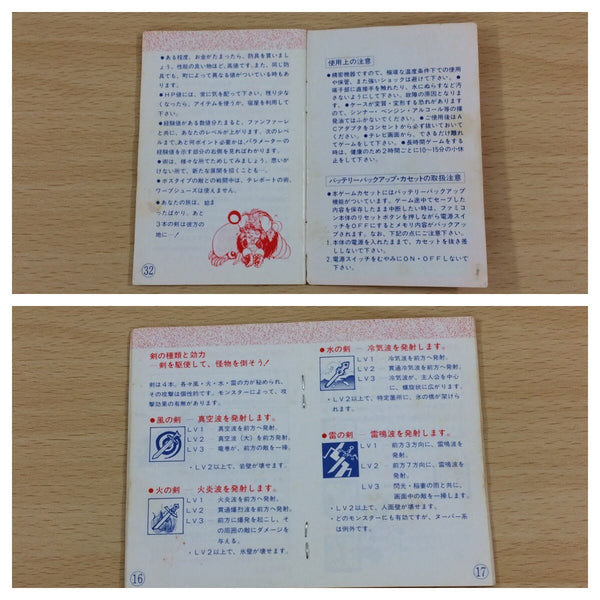 ●ある程度、お金がたまったら、防具を買いましょう。性能の良い物ほど、高価です。また、同じ防具でも、町によって異なる値がついている時もあります。
●HP値には、常に気を配って下さい。残り少なくなったら、アイテムを使うか、宿屋を利用して下さい。
●経験値がある数値分たまると、ファンファーレと共に、あなたのレベルが上がります。次のレベルまで、あと何ポイント必要かは、パラメーターの経験値を示す部分の右側を見ればわかります。
●術は、様々な所でためしてみましょう。思いがけない所で、新たな展開を招くことも…。
●ボスタイプの敵との戦闘中は、テレポートの術、ワープシューズは使えません。
●あなたの旅は、始まったばかり。あと3本の剣は彼方の地に…!
32
使用上の注意
●精密機器ですので、極端な温度条件下での使用や保管、また強いショックは避けて下さい。●端子部に直接手を触れたり、水にぬらすなど汚さないようにして下さい。故障の原因となります。●ケースが変質・変形する恐れがありますので、シンナー・ベンジン・アルコール等の揮発油ではふかないでください。●ご使用後はACアダプタをコンセントから必ず抜いておいて下さい。●テレビ画面から、できるだけ離れてゲームをして下さい。●長時間ゲームをする時は、健康のため2時間ごとに10〜15分の小休止をして下さい。
バッテリーバックアップ・カセットの取扱注意
●本ゲームカセットにはバッテリーバックアップ機能がついています。ゲーム途中でセーブした内容を保存したまま中断したい時は、ファミコン本体のリセットボタンを押しながら電源スイッチをOFFにするとメモリ内容がバックアップされます。なお、下記の点にご注意下さい。
1.本体の電源を入れたままで、カセットを抜き差ししないで下さい。
2.電源スイッチをむやみにON・OFFしないで下さい。
剣の種類と効力
―剣を駆使して、怪物を倒そう!
剣は4本。各々風・火・水・雷の力が秘められ、その攻撃は個性的です。モンスターによって、攻撃効果の有無があります。
●風の剣―真空波を発射します。
LV1 真空波を前方へ発射。
LV2―真空波(大)を前方発射。
LV3―竜巻が、前方の敵を一掃。
・LV2以上で、岩壁が壊せます。
●火の剣―火炎波を発射します。
LV1 火炎波を前方へ発射。
LV2 貫通爆烈波を前方へ発射。
LV3―前方に爆発を起こし、その周囲の敵にダメージを与える。
・LV2以上で、氷壁が壊せます。
16
●水の剣―冷気波を発射します。
LV1―冷気波を前方へ発射。
LV2―貫通冷気波を前方へ発射。
LV3―冷気波が、主人公を中心に、螺旋状に広がります。
・LV2以上で、特定箇所に、氷の橋が架けられます。
●雷の剣―雷鳴波を発射します。
LV1―前方3方向に、雷鳴波を発射。
LV2―前方7方向に、雷鳴波を発射。
LV3―閃光・稲妻の雨と共に、画面中の敵を一掃します。
・LV2以上で、人面壁が壊せます。
・どのモンスターにも有効ですが、ヌーバー系は例外です。
17